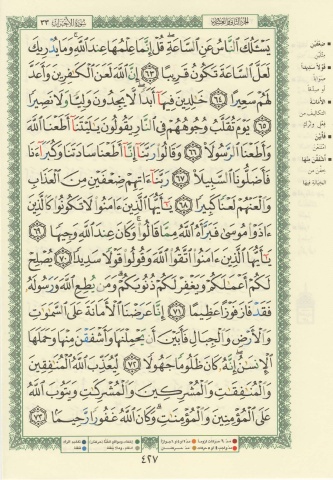 ٣٣ سُورَةُ الأَحْزَابِ
الجزء الثاني والعشرون
يَسْـَٔلُكَ ٱلنَّاسُ عَنِ ٱلسَّاعَةِ ۖ قُلْ إِنَّمَا عِلْمُهَا عِندَ ٱللَّهِ ۚ وَمَا يُدْرِيكَ
لَعَلَّ ٱلسَّاعَةَ تَكُونُ قَرِيبًا ﴿٦٣﴾ إِنَّ ٱللَّهَ لَعَنَ ٱلْكَـٰفِرِينَ وَأَعَدَّ
لَهُمْ سَعِيرًا ﴿٦٤﴾ خَـٰلِدِينَ فِيهَآ أَبَدًا ۖ لَّا يَجِدُونَ وَلِيًّا وَلَا نَصِيرًا
﴿٦٥﴾ يَوْمَ تُقَلَّبُ وُجُوهُهُمْ فِى ٱلنَّارِ يَقُولُونَ يَـٰلَيْتَنَآ أَطَعْنَا ٱللَّهَ
وَأَطَعْنَا ٱلرَّسُولَا۠ ﴿٦٦﴾ وَقَالُوا۟ رَبَّنَآ إِنَّآ أَطَعْنَا سَادَتَنَا وَكُبَرَآءَنَا
فَأَضَلُّونَا ٱلسَّبِيلَا۠ ﴿٦٧﴾ رَبَّنَآ ءَاتِهِمْ ضِعْفَيْنِ مِنَ ٱلْعَذَابِ
وَٱلْعَنْهُمْ لَعْنًا كَبِيرًا ﴿٦٨﴾ يَـٰٓأَيُّهَا ٱلَّذِينَ ءَامَنُوا۟ لَا تَكُونُوا۟ كَٱلَّذِينَ
ءَاذَوْا۟ مُوسَىٰ فَبَرَّأَهُ ٱللَّهُ مِمَّا قَالُوا۟ ۚ وَكَانَ عِندَ ٱللَّهِ وَجِيهًا ﴿٦٩﴾
يَـٰٓأَيُّهَا ٱلَّذِينَ ءَامَنُوا۟ ٱتَّقُوا۟ ٱللَّهَ وَقُولُوا۟ قَوْلًا سَدِيدًا ﴿٧٠﴾ يُصْلِحْ
لَكُمْ أَعْمَـٰلَكُمْ وَيَغْفِرْ لَكُمْ ذُنُوبَكُمْ ۗ وَمَن يُطِعِ ٱللَّهَ وَرَسُولَهُۥ
فَقَدْ فَازَ فَوْزًا عَظِيمًا ﴿٧١﴾ إِنَّا عَرَضْنَا ٱلْأَمَانَةَ عَلَى ٱلسَّمَـٰوَٰتِ
وَٱلْأَرْضِ وَٱلْجِبَالِ فَأَبَيْنَ أَن يَحْمِلْنَهَا وَأَشْفَقْنَ مِنْهَا وَحَمَلَهَا
ٱلْإِنسَـٰنُ ۖ إِنَّهُۥ كَانَ ظَلُومًا جَهُولًا ﴿٧٢﴾ لِّيُعَذِّبَ ٱللَّهُ ٱلْمُنَـٰفِقِينَ
وَٱلْمُنَـٰفِقَـٰتِ وَٱلْمُشْرِكِينَ وَٱلْمُشْرِكَـٰتِ وَيَتُوبَ ٱللَّهُ
عَلَى ٱلْمُؤْمِنِينَ وَٱلْمُؤْمِنَـٰتِ ۗ وَكَانَ ٱللَّهُ غَفُورًا رَّحِيمًا ﴿٧٣﴾
٤٢٧
ضعفين
مثلين
قولا سديدا
صوابا
أو صدقا
الأمانة
التكاليف من
فأبين
امتنعن
أشفقن منها
خفن من
الخيانة فيها